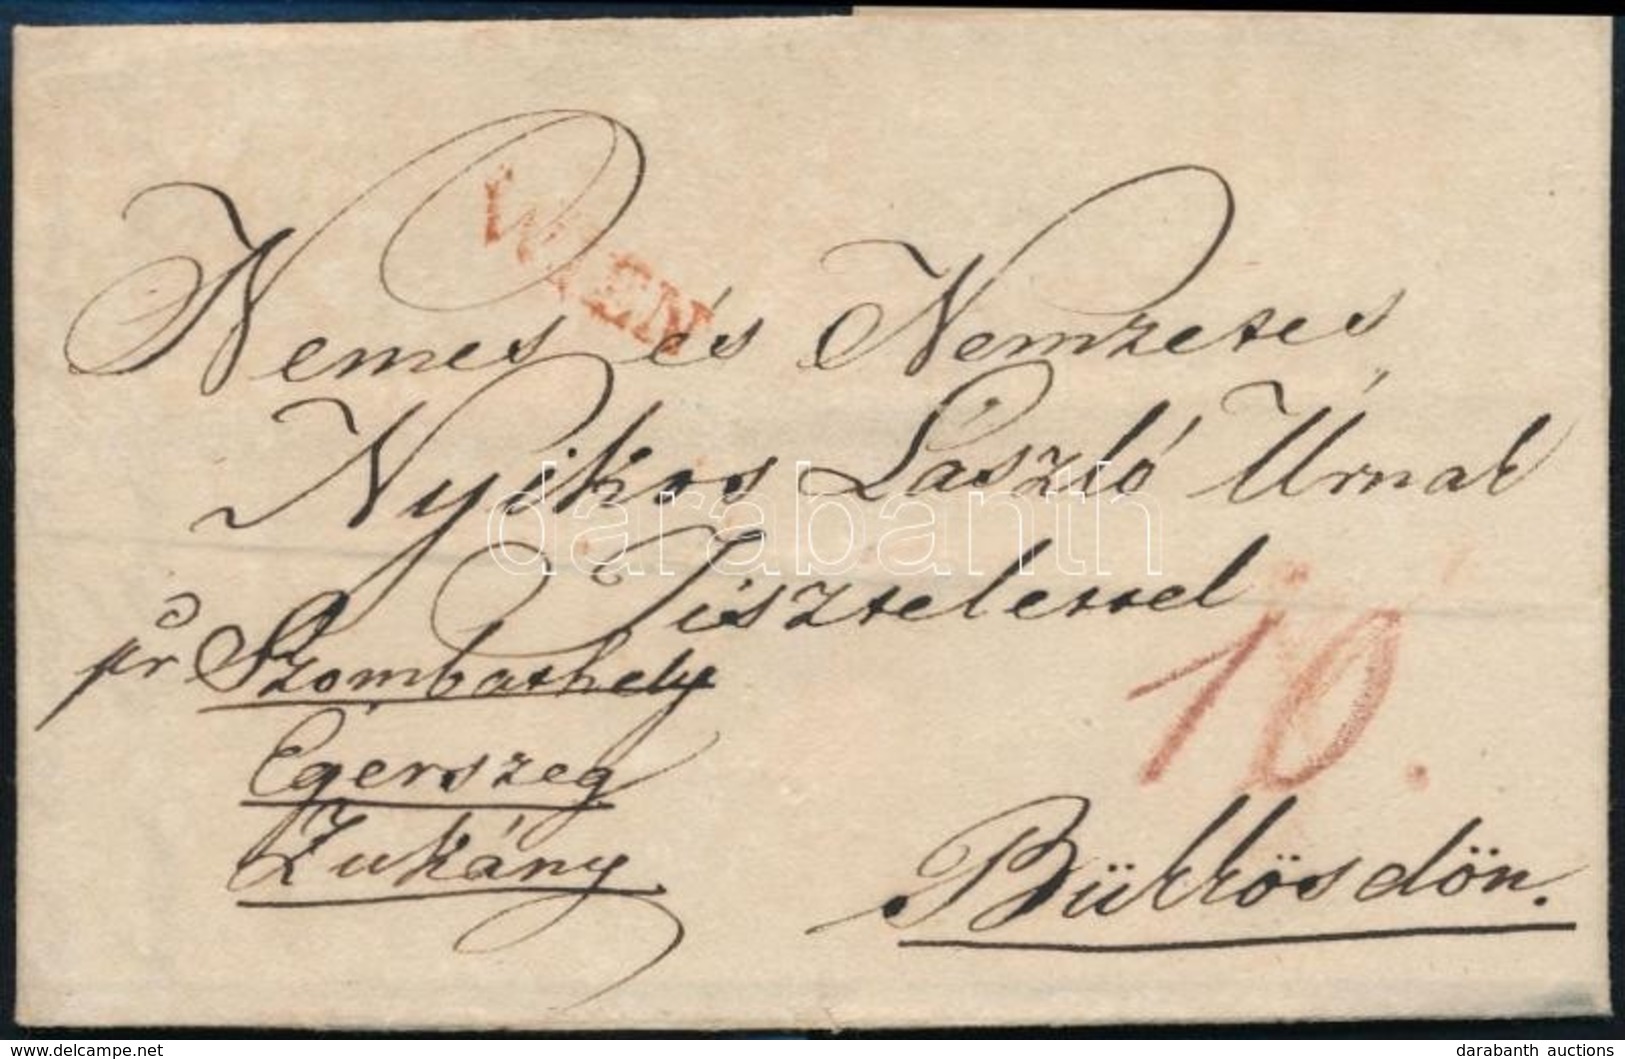 WIEN
Nemes és Nemzetes
Nyikos László Úrnak
Tisztelettel
pr Szombathely
Egerszeg
Zukány
10.
Bükkösdön.
darabanth
www.delcampe.net
darabanth auctions